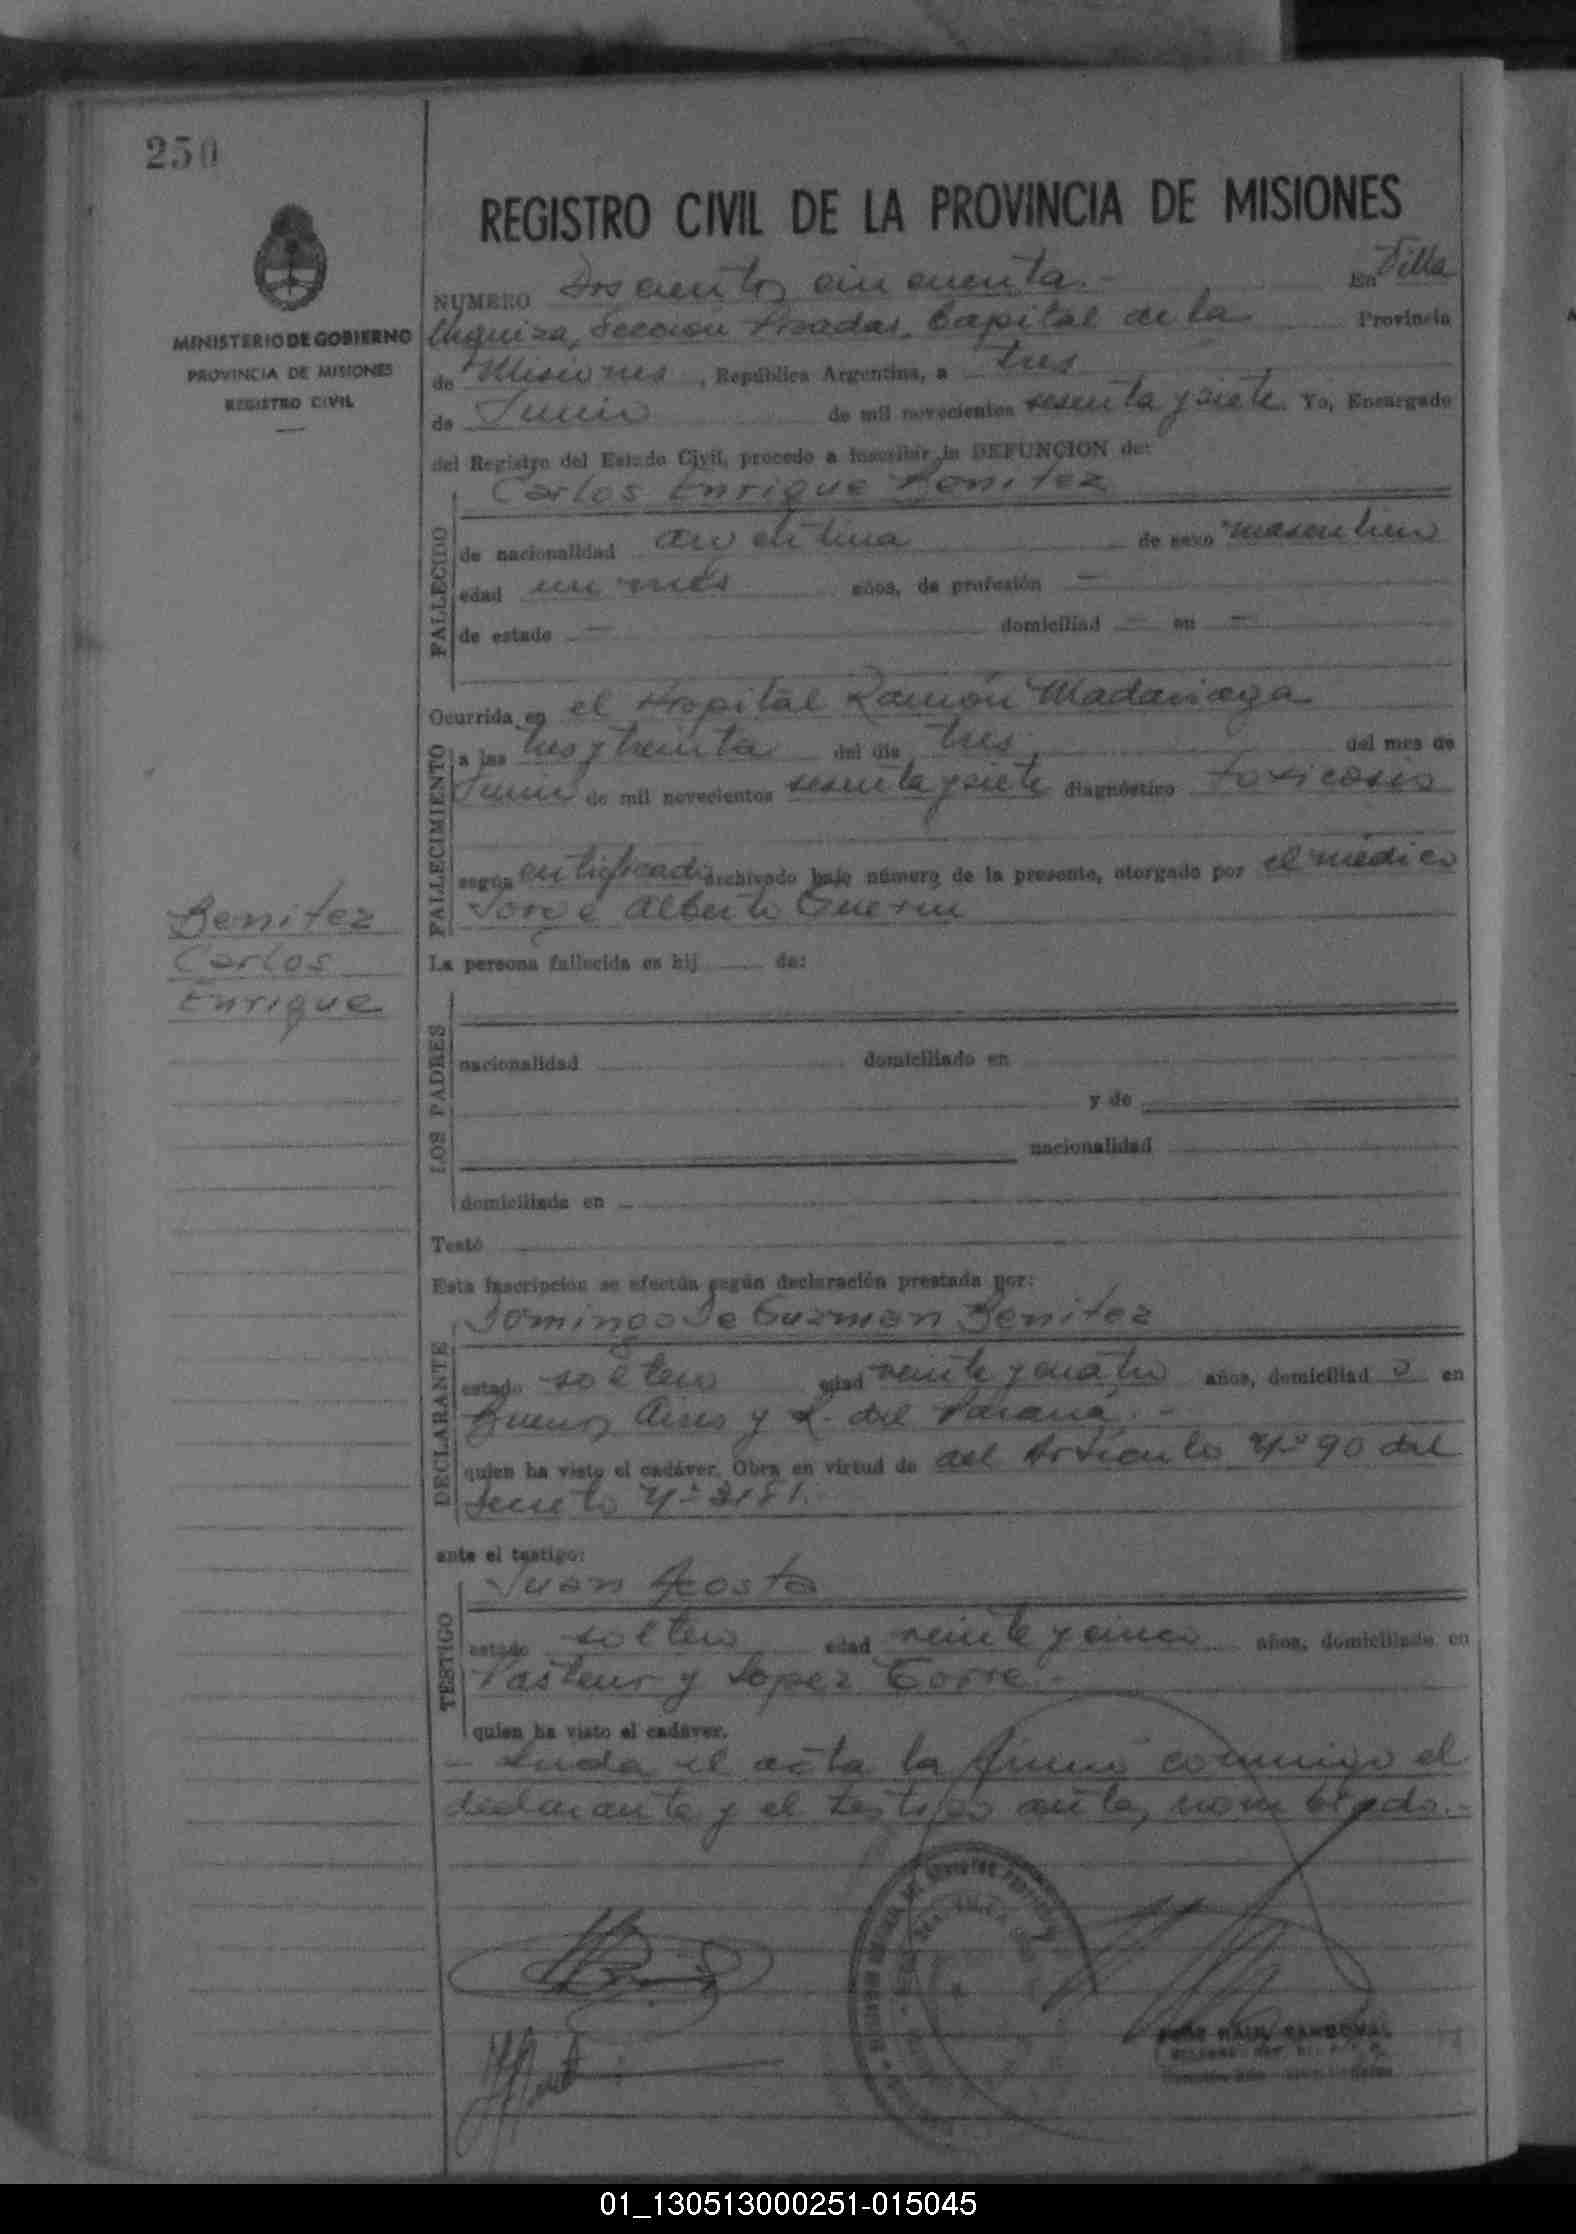 250
REGISTRO CIVIL DE LA PROVINCIA DE MISIONES
MINISTERIO DE GOBIERNO
PROVINCIA DE MISIONES
REGISTRO CIVIL
NUMERO Doscientos cincuenta.- En Villa
Urquiza, Sección Posadas, Capital de la Provincia
de Misiones, República Argentina, a tres
de Junio de mil novecientos sesenta y siete. Yo, Encargado
del Registro del Estado Civil, procedo a inscribir la DEFUNCION de:
Carlos Enrique Benitez
FALLECIDO
de nacionalidad argentina de sexo masculino
edad un mes años, de profesión —
de estado — domiciliad — en —
FALLECIMIENTO
Ocurrida en el Hospital Ramón Madariaga
a las tres y treinta del día tres del mes de
Junio de mil novecientos sesenta y siete diagnóstico toxicosis
según certificado archivado bajo número de la presente, otorgado por el médico
Jorge Alberto
Benitez
Carlos
Enrique
La persona fallecida es hij de:
LOS PADRES
nacionalidad domiciliado en
y de
nacionalidad
domiciliada en
Testó
Esta inscripcion se efectúa según declaración prestada por:
DECLARANTE
Domingo De Guzman Benitez
estado soltero edad veinte y cuatro años, domiciliad o en
Buenos Aires y L. del Paraná.-
quien ha visto el cadáver. Obra en virtud de del Artículo Nº 90 del
Decreto Nº
ante el testigo:
TESTIGO
Juan Acosta
estado soltero edad veinte y cinco años, domiciliado en
Pasteur y Lopez Torre.-
quien ha visto el cadáver.
- Leída el acta la firmó conmigo el
declarante y el testigo antes nombrado.-
JOSE RAUL SANDOVAL
01_130513000251-015045